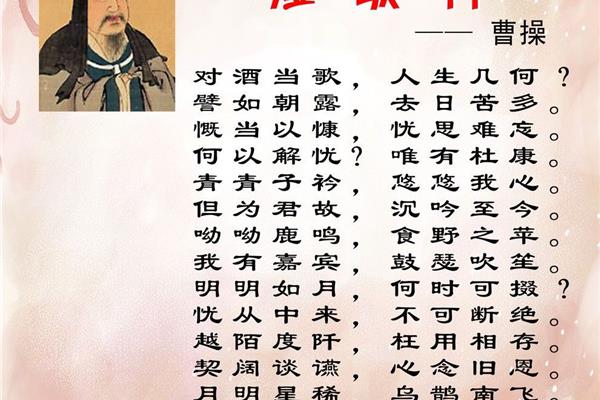 —— 曹操
对酒当歌，人生几何？
譬如朝露，去日苦多。
慨当以慷，忧思难忘。
何以解忧？唯有杜康。
青青子衿，悠悠我心。
但为君故，沉吟至今。
呦呦鹿鸣，食野之苹。
我有嘉宾，鼓瑟吹笙。
明明如月，何时可掇？
忧从中来，不可断绝。
越陌度阡，枉用相存。
契阔谈讌，心念旧恩。
月明星稀，乌鹊南飞。